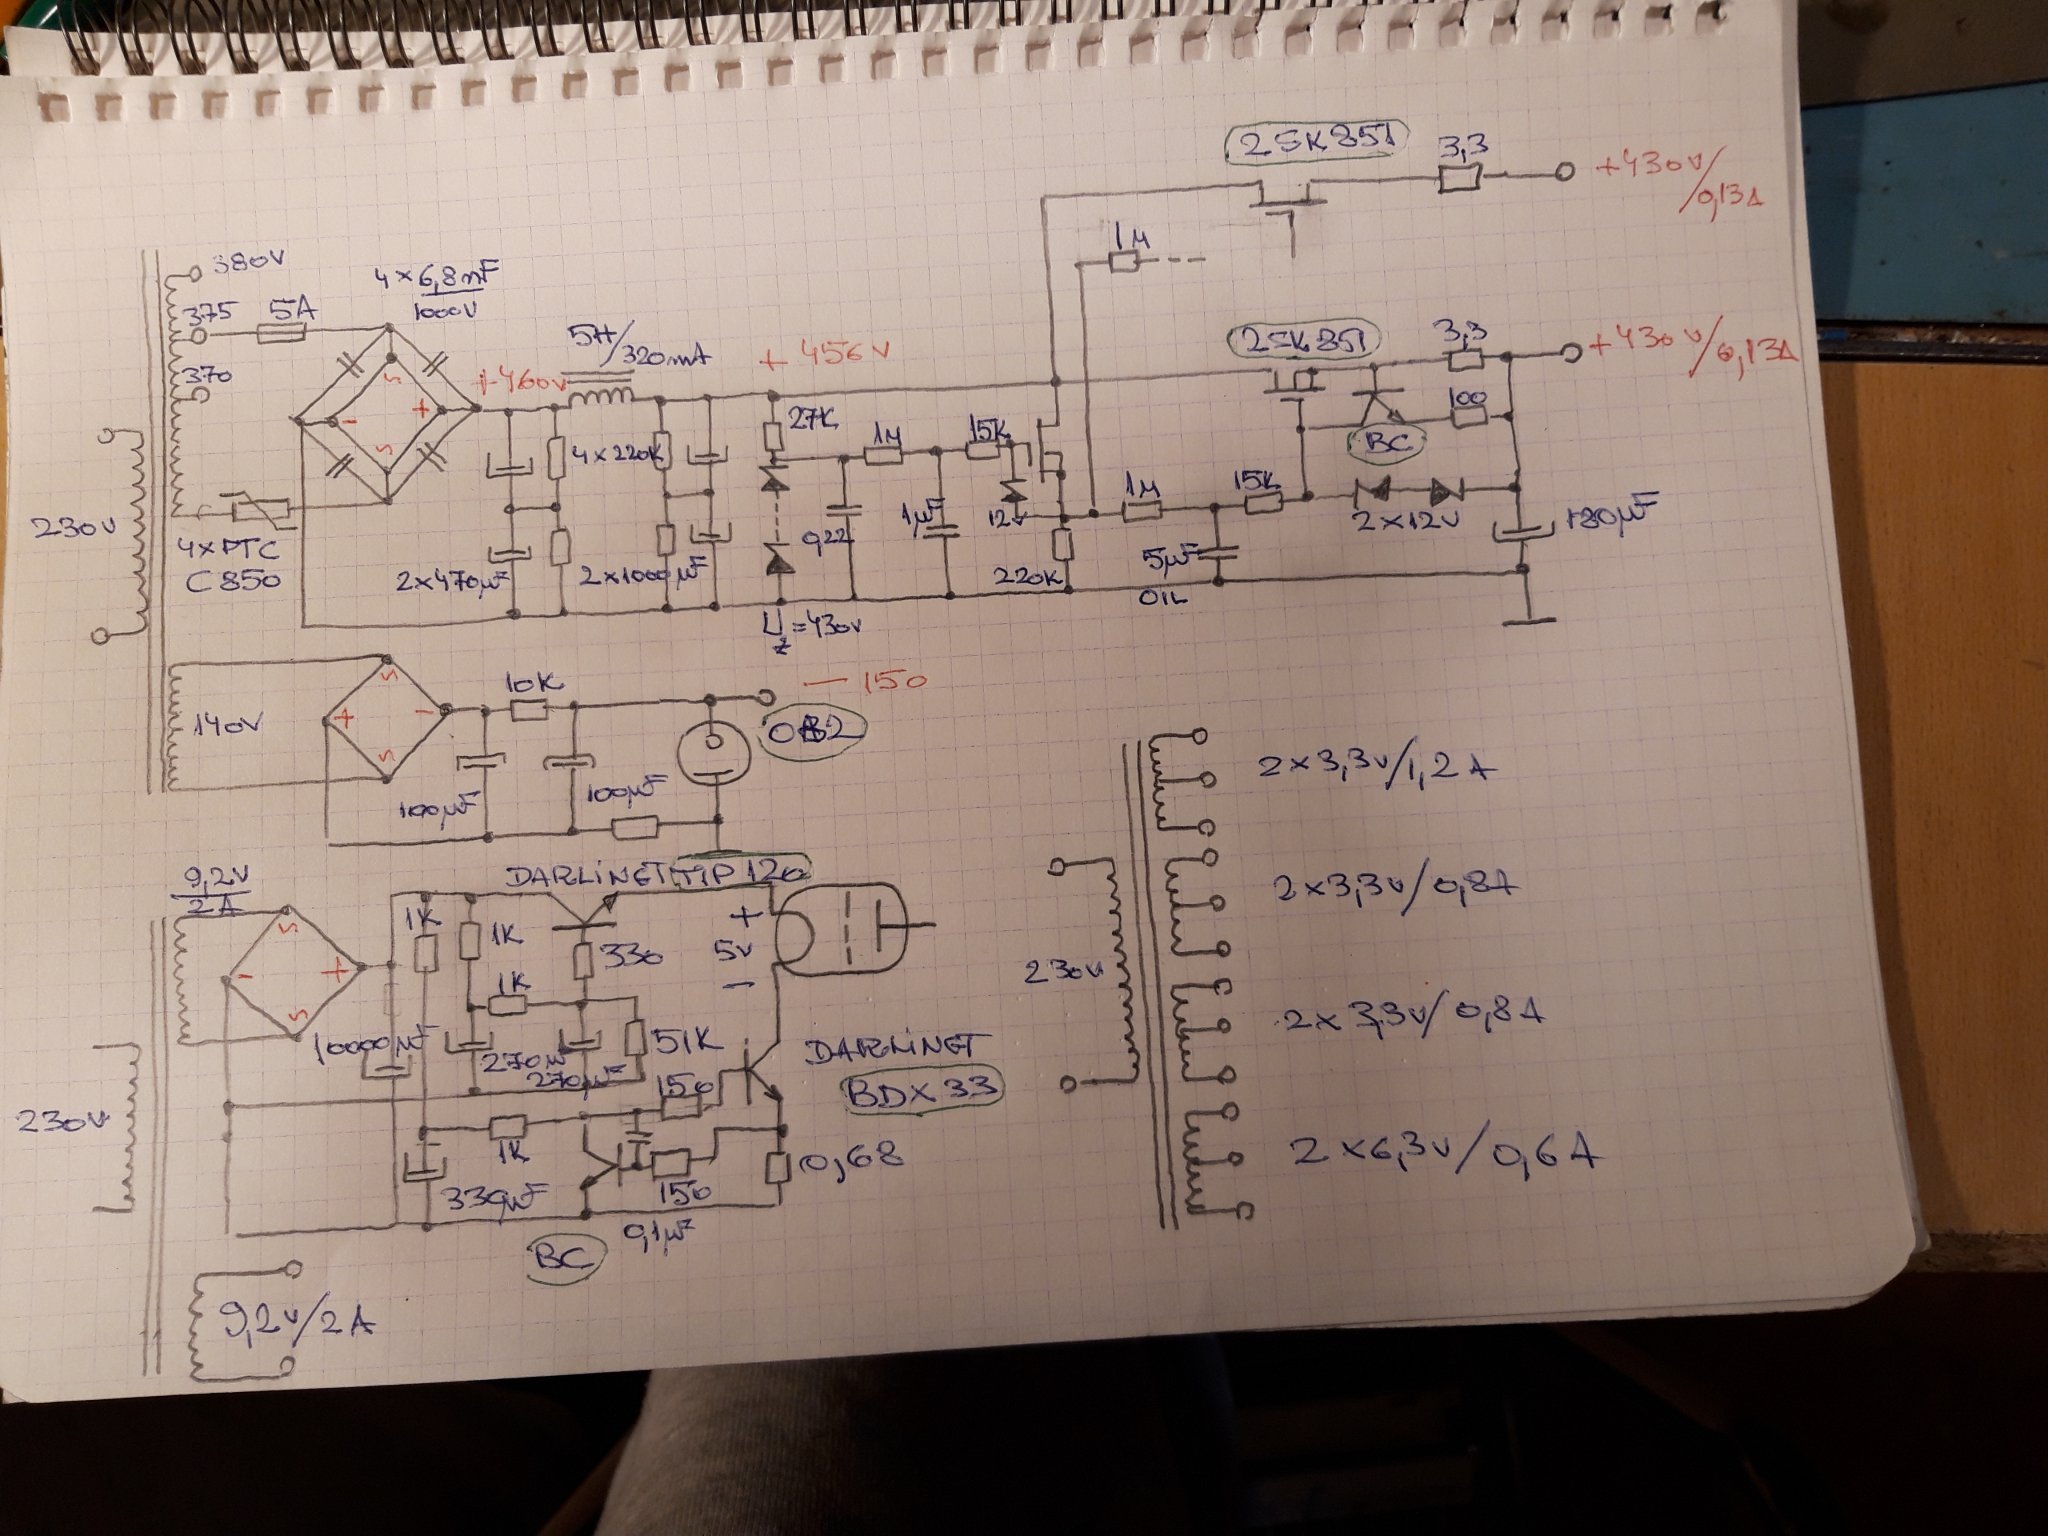 2SK851
3,3
+430V/0,13A
1M
380V
375
5A
4×6,8nF
1000V
370
5H/320mA
+460V
+456V
2SK851
3,3
+430V/0,13A
100
BC
27K
1M
15K
4×220K
1M
15K
12V
2×12V
180µF
230V
4×PTC
C850
2×470µF
2×1000µF
0,22
1µF
220K
5µF
OIL
Uz=430V
140V
10K
-150
100µF
100µF
2×3,3V/1,2A
9,2V
2A
DARLINGT TIP120
1K
1K
330
+
5V
-
1K
2×3,3V/0,8A
230V
10000µF
270µF
270µF
51K
DARLINGT
BDX33
150
2×3,3V/0,8A
230V
1K
330µF
150
0,68
0,1µF
BC
2×6,3V/0,6A
9,2V/2A